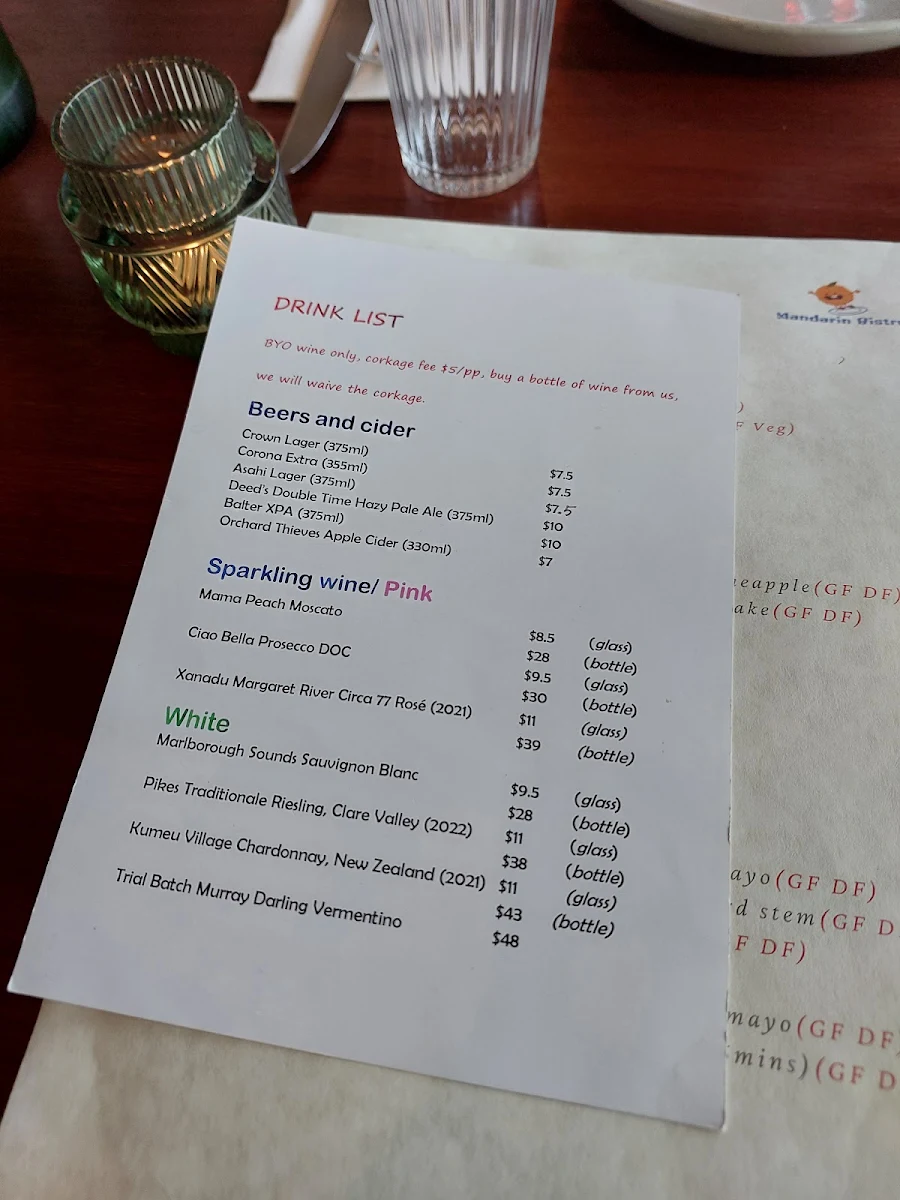 DRINK LIST
BYO wine only, corkage fee $5/pp, buy a bottle of wine from us,
we will waive the corkage.
Beers and cider
Crown Lager (375ml) $7.5
Corona Extra (355ml) $7.5
Asahi Lager (375ml) $7.5
Deed's Double Time Hazy Pale Ale (375ml) $10
Balter XPA (375ml) $10
Orchard Thieves Apple Cider (330ml) $7
Sparkling wine/ Pink
Mama Peach Moscato $8.5 (glass)
$28 (bottle)
Ciao Bella Prosecco DOC $9.5 (glass)
$30 (bottle)
Xanadu Margaret River Circa 77 Rosé (2021) $11 (glass)
$39 (bottle)
White
Marlborough Sounds Sauvignon Blanc $9.5 (glass)
$28 (bottle)
Pikes Traditionale Riesling, Clare Valley (2022) $11 (glass)
$38 (bottle)
Kumeu Village Chardonnay, New Zealand (2021) $11 (glass)
$43 (bottle)
Trial Batch Murray Darling Vermentino $48
Mandarin Bistr
Veg)
eapple(GF DF)
ake(GF DF)
ayo(GF DF)
d stem(GF D
F DF)
mayo(GF DF
mins)(GF D